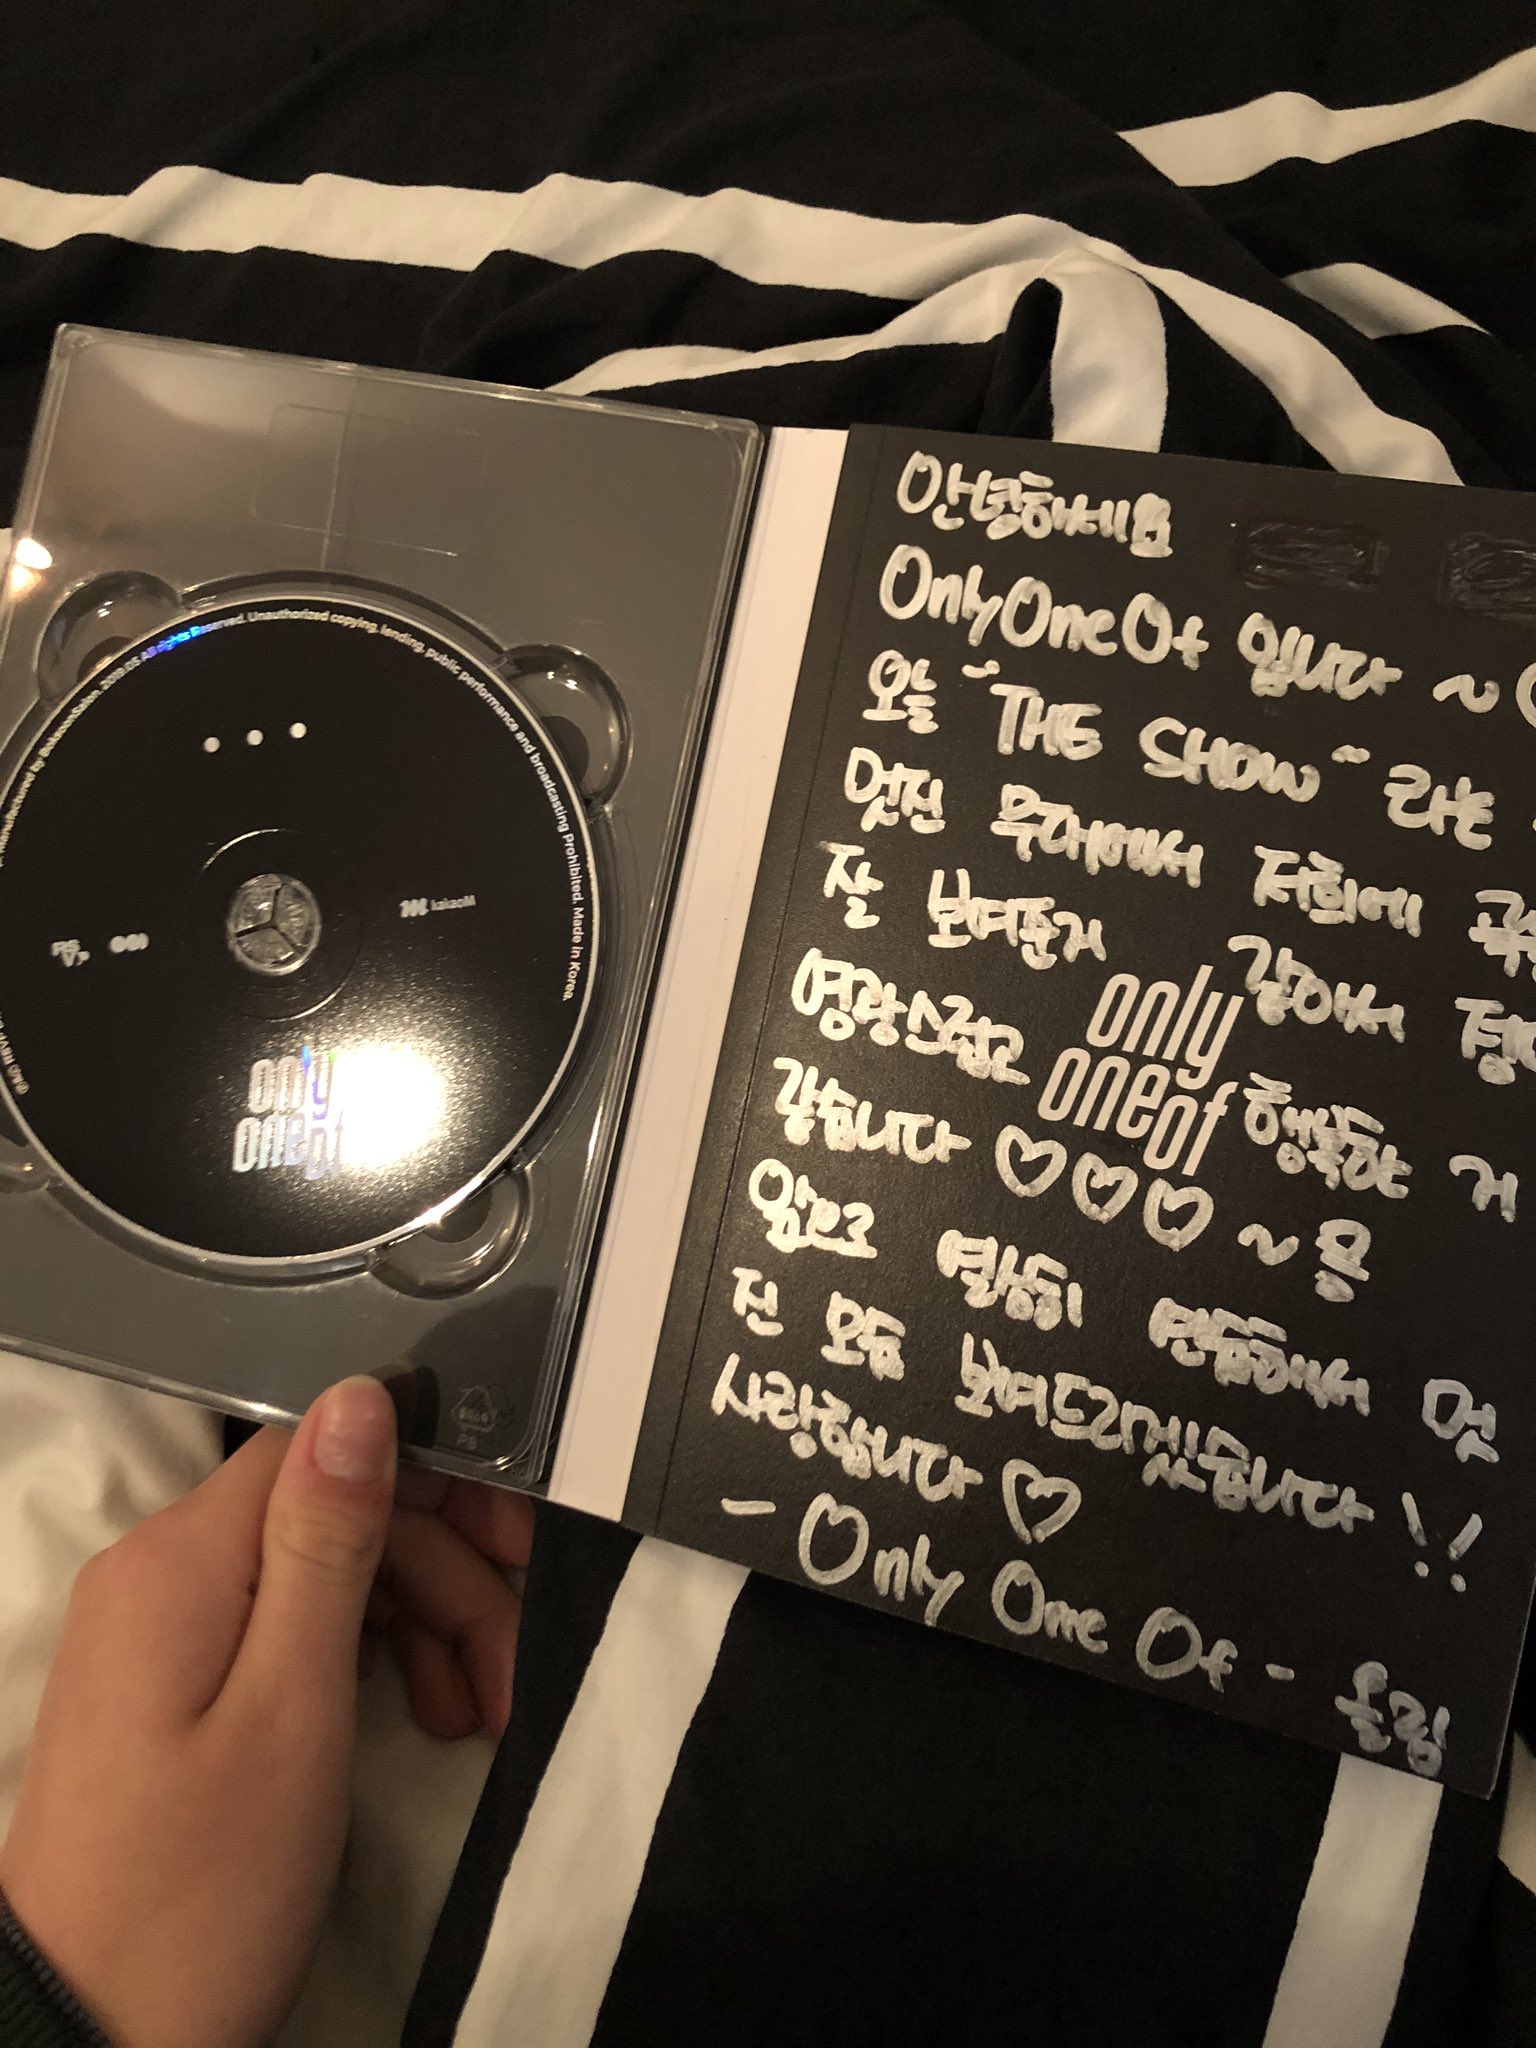 안녕하세요
OnlyOneOf 입니다 ~
오늘 "THE SHOW" 라는
멋진 무대에서 저희에 곡
잘 보여준거 같아서
영광스럽고 행복한 거
같습니다 ♡♡♡ ~
앞으로 열심히 연습해서 멋
진 모습 보여드리겠습니다 !!
사랑합니다 ♡
- Only One Of -
only
oneof
All rights Reserved. Unauthorized copying, lending, public performance and broadcasting Prohibited. Made in Korea.
kakaoM
only
oneof
PS